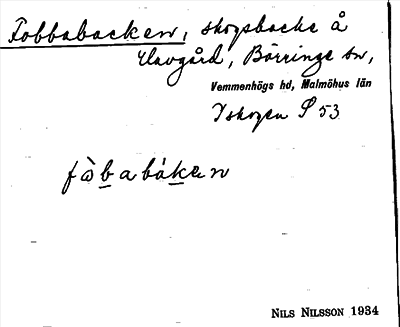 Fobbabacken, skogsbacke å
Clavgård, Börringe sn,
Vemmenhögs hd, Malmöhus län
I skogen S 53
fòbabáken
NILS NILSSON 1934